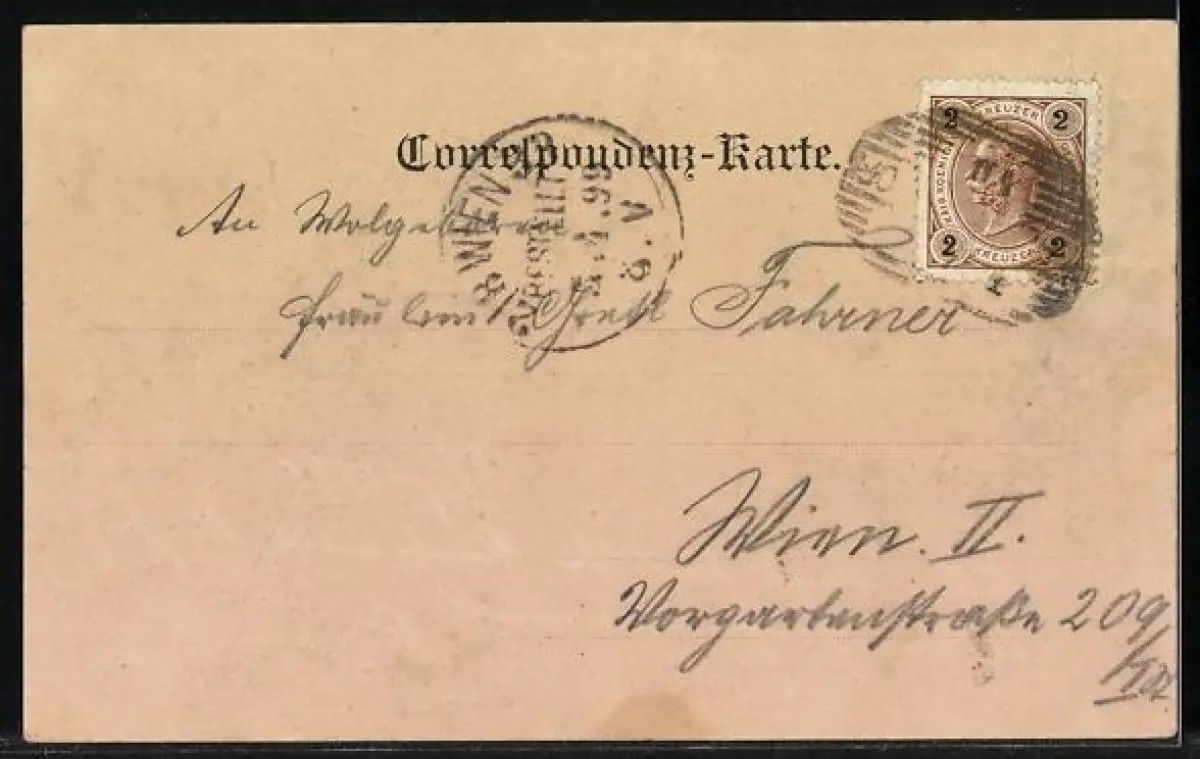 Correspondenz-Karte.
2 KREUZER 2
2 KREUZER 2
WIEN
BESTELLT
99
An Wolgeboren
Fräulein Gretl Fahrner
Wien. II.
Vorgartenstraße 209/